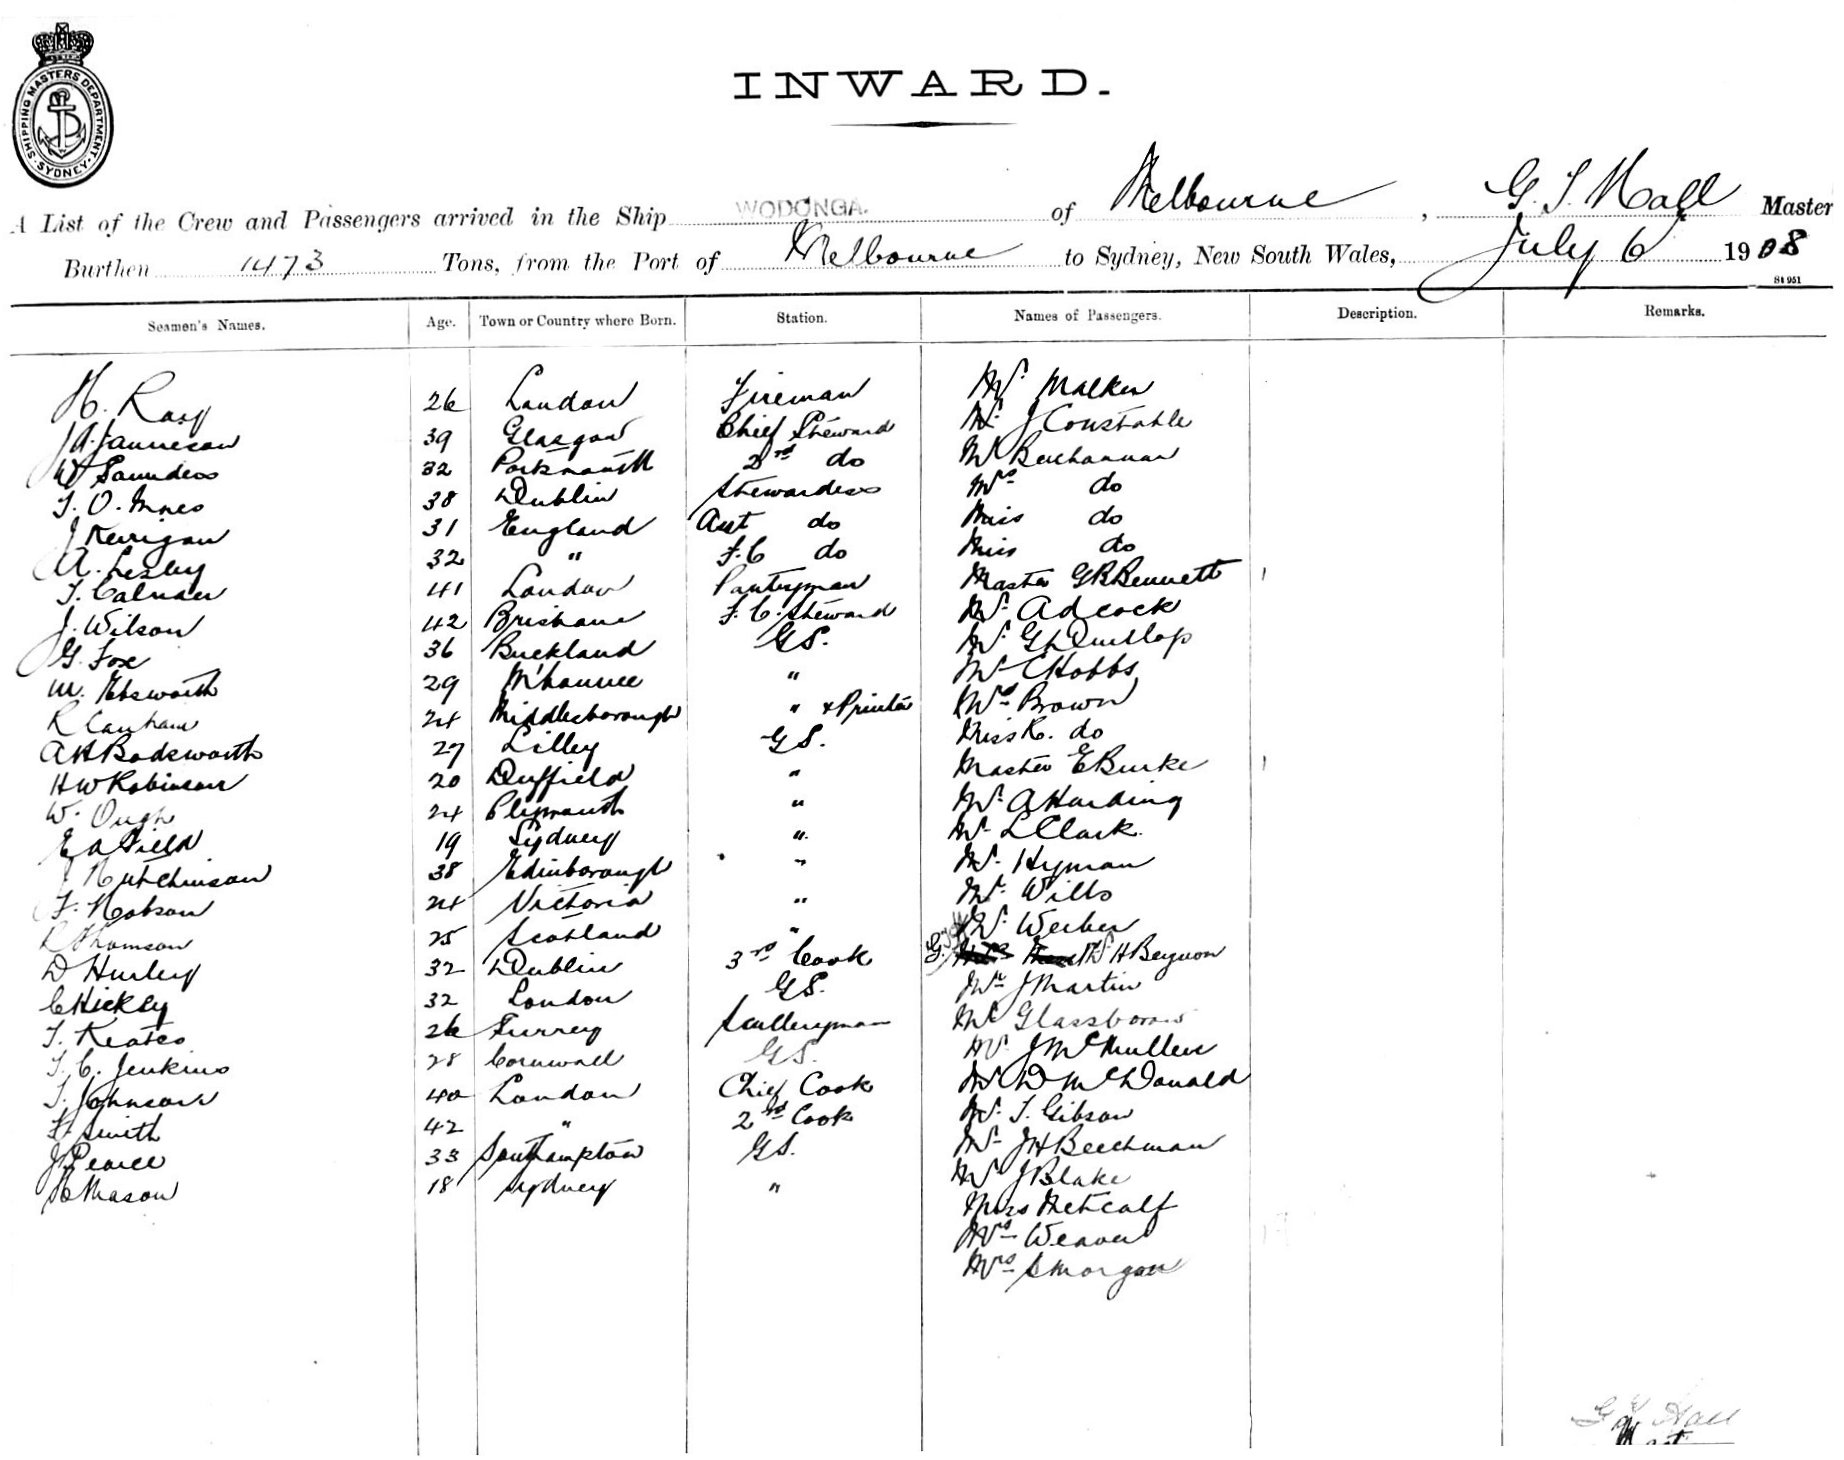 SHIPPING MASTERS DEPARTMENT · SYDNEY ·
INWARD.
A List of the Crew and Passengers arrived in the Ship WODONGA. of Melbourne, G. S. Hall Master
Burthen 1473 Tons, from the Port of Melbourne to Sydney, New South Wales, July 6 1908
St 951
Seamen's Names. Age. Town or Country where Born. Station. Names of Passengers. Description. Remarks.
H. Ray 26 London Fireman Mr Walker
J A Jamieson 39 Glasgow Chief Steward Mr J Constable
W Saunders 32 Portsmouth 2nd do Mr Buchannan
38 Dublin Stewardess Mrs do
J Kerrigan 31 England Asst do Miss do
A. Lesley 32 " F. C do Miss do
T. Calnan 41 London Pantryman Master G R Bennett
J. Wilson 42 Brisbane F. C. Steward Mr Adcock
G. Fox 36 Buckland G S. Mr G L Dunlop
M. Ebsworth 29 " Mr C Hobbs
R Canham 24 Middlesborough " & Printer Mrs Brown
A H Badsworth 27 Lilley G S. Miss R. do
H W Robinson 20 Duffield " Master E Burke
W. Ough 24 Plymouth " Mr A Harding
E A Field 19 Sydney " Mr L Clark.
J Hutchinson 38 Edinborough " Mr Hyman
F. Hobson 24 Victoria " Mr Wills
R Thomson 25 Scotland " Mr Weiber
D Hurley 32 Dublin 3rd Cook Mr H Bergwon
C Hickey 32 London G S. Mr J Martin
T. Keates 26 Surrey Sculleryman Mr Glassborow
T. C. Jenkins 28 Cornwall G S. Mr J McMullen
T. Johnson 40 London Chief Cook Mr D McDonald
F. Smith 42 " 2nd Cook Mr T. Gibson
J Pearce 33 Southampton G S. Mr J H Beechman
H Mason 18 Sydney " Mr J Blake
Miss Metcalf
Mrs Weaver
Mrs S Morgan
G S Hall
Mast